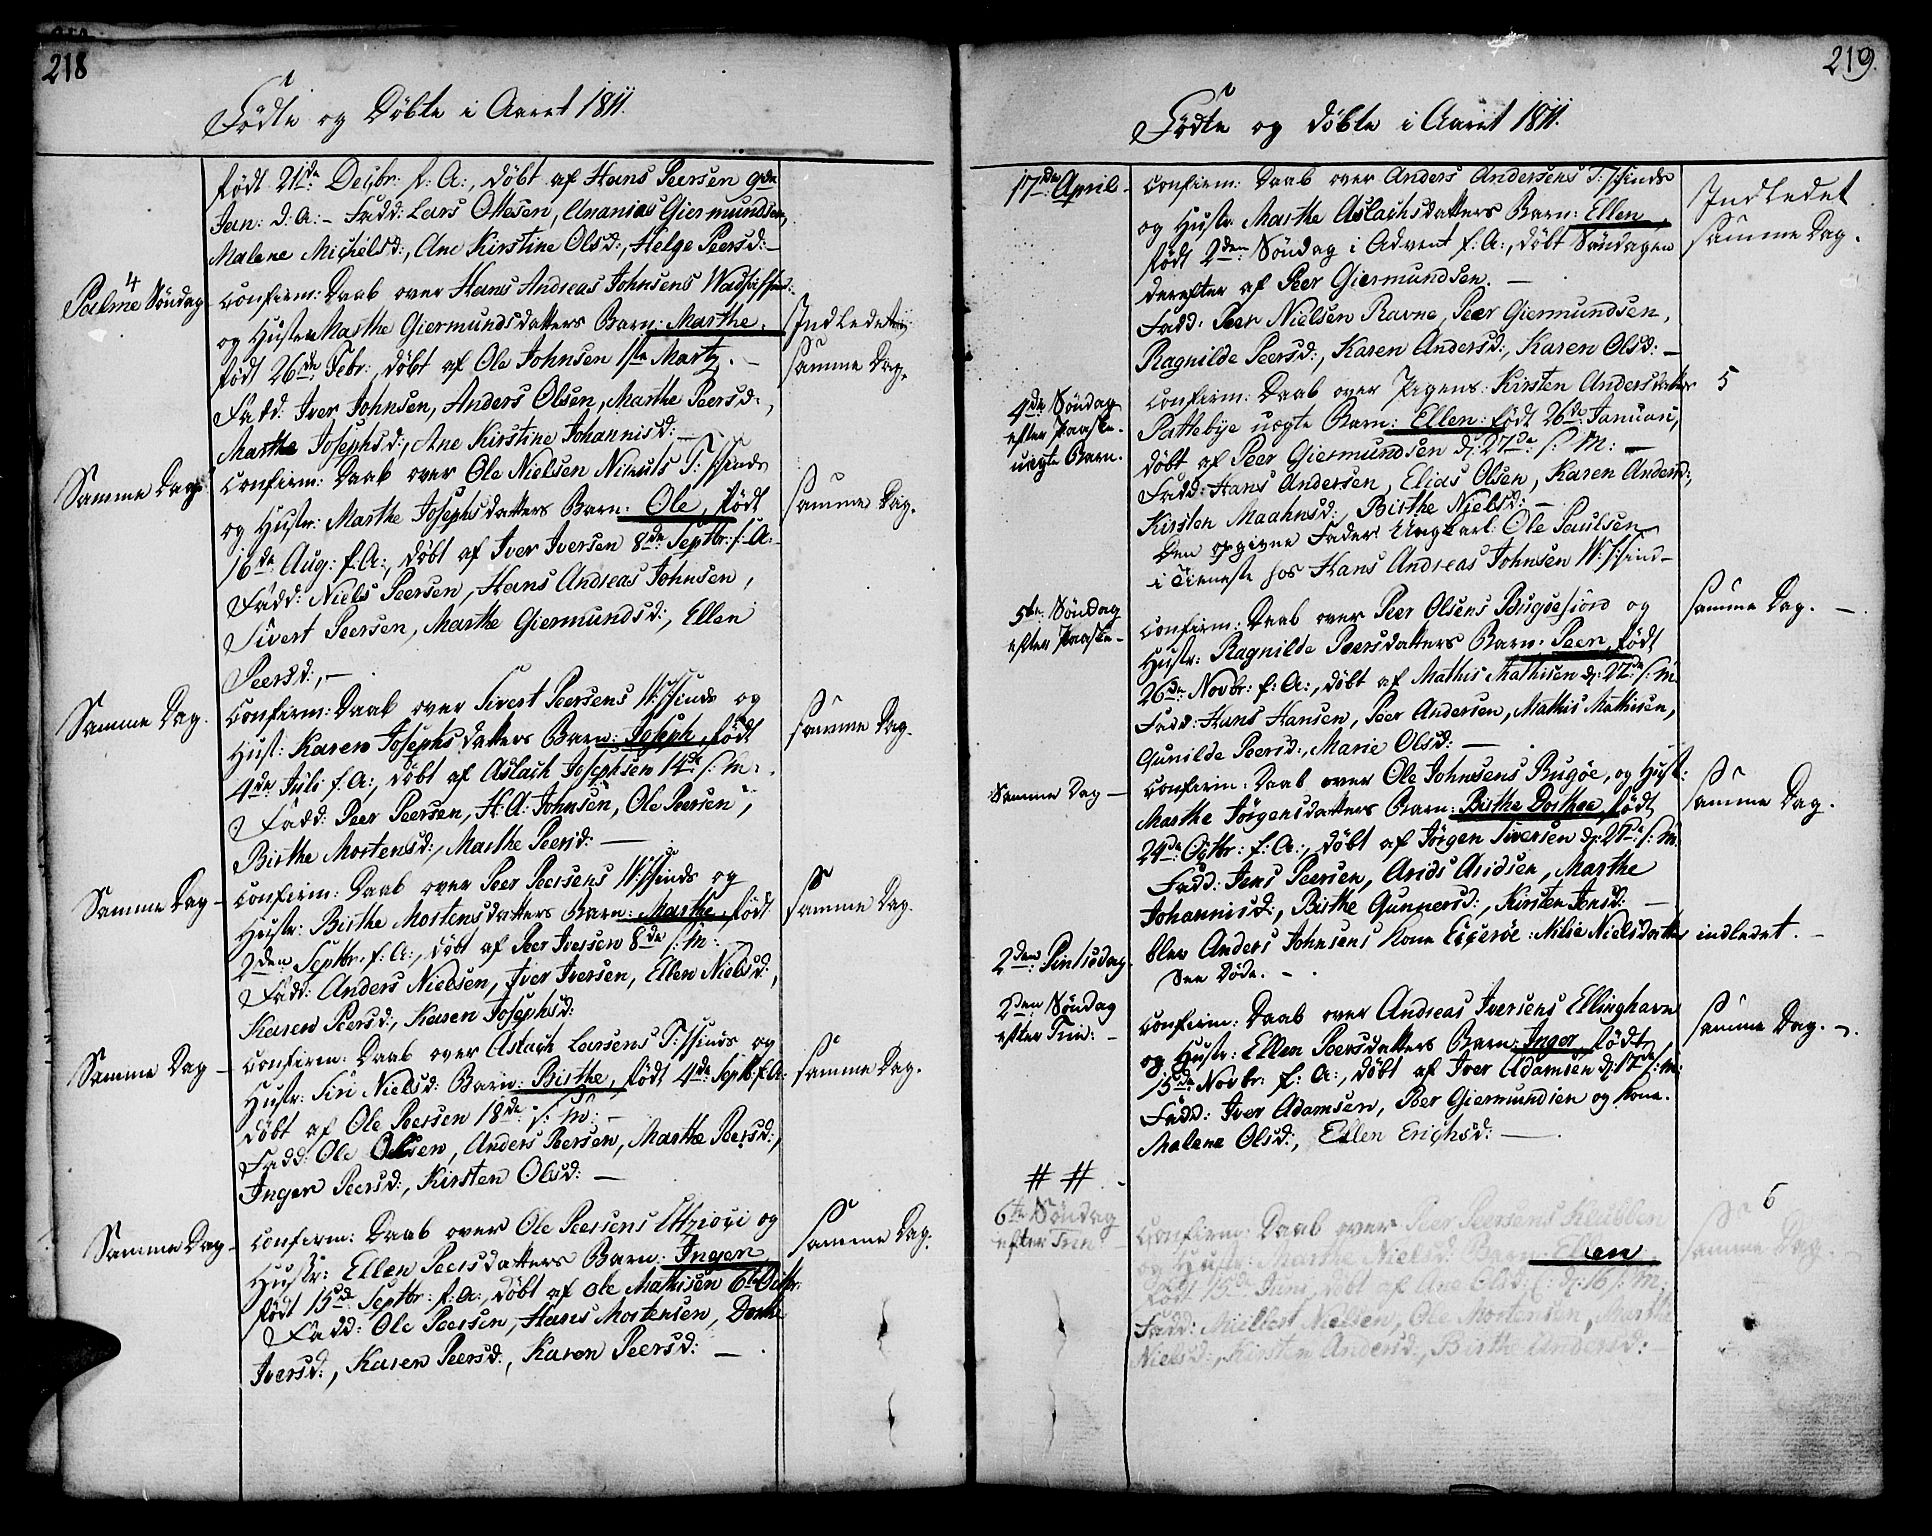 218
Fødte og Døbte i Aaret 1811.
født 21de Decbr: f: A:, døbt af Hans Peersen 9de
Jan: d: A: – Fadd: Lars Ottesen, Ananias Giermundsen,
Malene Michelsd:, Ane Kirstine Olsd:, Helge Peersd: –
4
Palme Søndag
Confirm: Daab over Hans Andreas Johnsens
og Hustr: Marthe Giermundsdatters Barn: Marthe,
født 26de Febr:, døbt af Ole Johnsen 1te Martz. –
Fadd: Iver Johnsen, Anders Olsen, Marthe Peersd:,
Marthe Josephsd:, Ane Kirstine Johannisd: –
Indledet
samme Dag.
Samme Dag
Confirm: Daab over Ole Nielsen T: Finds
og Hustr: Marthe Josephsdatters Barn: Ole, født
16de Aug: f: A:, døbt af Iver Iversen 8de Septbr: f: A: –
Fadd: Niels Peersen, Hans Andreas Johnsen,
Sivert Peersen, Marthe Giermundsd:, Ellen
Peersd:, –
samme Dag.
Samme Dag.
Confirm: Daab over Sivert Peersens W: Finds og
Hust: Karen Josephsdatters Barn: Joseph, født
4de Juli f: A:, døbt af Aslach Josephsen 14de s: M: .
Fadd: Peer Peersen, H: A: Johnsen, Ole Peersen,
Birthe Mortensd:, Marthe Peersd: –
samme Dag.
Samme Dag –
Confirm: Daab over Peer Peersens W: Finds og
Hustr: Birthe Mortensdatters Barn: Marthe, født
2den Septbr: f: A:, døbt af Peer Iversen 8de s: M: .
Fadd: Anders Nielsen, Iver Iversen, Ellen Nielsd:,
Karen Peersd:, Karen Josephsd:
samme Dag.
Samme Dag –
Confirm: Daab over Aslach Larsens T: Finds og
Hustr: Siri Nielsd: Barn: Birthe, født 4de Septb: f: A:
døbt af Ole Peersen 18de s: M: –
Fadd: Ole Olsen, Anders Peersen, Marthe Peersd:,
Inger Peersd:, Kirsten Olsd: –
samme Dag.
Samme Dag –
Confirm: Daab over Ole Peersens og
Hustr: Ellen Peersdatters Barn: Inger,
født 15de Septbr: f: A:, døbt af Ole Mathisen 6te Octbr:
Fadd: Ole Peersen, Hans Mortensen, Dorthe
Iversd:, Karen Peersd:, Karen Peersd: – .
samme Dag.
219.
Fødte og døbte i Aaret 1811.
17de April –
Confirm: Daab over Anders Andersens T: Finds
og Hustr: Marthe Aslachsdatters Barn: Ellen,
født 2den Søndag i Advent f: A:, døbt Søndagen
derefter af Peer Giermundsen. –
Fadd: Peer Nielsen Ravne, Peer Giermundsen,
Ragnilde Peersd:, Karen Andersd:, Karen Olsd: –
Indledet
samme Dag.
4de Søndag
efter Paaske.
uægte Barn.
Confirm: Daab over Pigens: Kirsten Andersdatter
Pattebye uægte Barn: Ellen: født 26de Januari,
døbt af Peer Giermundsen d: 27de s: M: –
Fadd: Hans Andersen, Elias Olsen, Karen Andersd:,
Kirsten Maahnsd:, Birthe Nielsd: –
Den opgivne Fader Ungkarl: Ole Paulsen
i Tieneste hos Hans Andreas Johnsen W: Find –
5
5te Søndag
efter Paaske –
Confirm: Daab over Peer Olsens Bugøefiord og
Hustr: Ragnilde Peersdatters Barn: Peer, født
26de Novbr: f: A:, døbt af Mathis Mathisen d: 27de s: M.
Fadd: Hans Hansen, Peer Andersen, Mathis Mathisen,
Gunilde Peersd:, Marie Olsd: –
samme Dag. –
Samme Dag –
Confirm: Daab over Ole Johnsens Bugøe, og Hust:
Marthe Jørgensdatters Barn: Birthe Dorthea, født
24de Octbr: f: A:, døbt af Jørgen Siversen d: 27de s: M.
Fadd: Jens Peersen, Arids Aridsen, Marthe
Johannisd:, Birthe Gunnersd:, Kirsten Jonsd: –
samme Dag.
2den Pintsedag.
blev Anders Johnsens Kone Eggerøe: Nilie Nielsdatter
See Døde. –
indledet. –
2den Søndag
efter Trin: –
Confirm: Daab over Andreas Iversens Ellinghavn
og Hustr: Ellen Peersdatters Barn: Inger, født
15de Novbr: f: A:, døbt af Iver Adamsen d: 17de s: M:
Fadd: Iver Adamsen, Peer Giermundsen og Kone.
Malene Olsd:, Ellen Erichsd: –
samme Dag. –
# # –
6te Søndag
efter Trin
Confirm: Daab over Peer Peersens Klubben
og Hustr: Marthe Nielsd: Barn: Ellen,
født 15de Juni, døbt af Ane Olsd: d: 16 s: M:
Fadd: Nielsen, Ole Mortensen, Marthe
Nielsd:, Kirsten Andersd:, Birthe Andersd: –
6
samme Dag. –